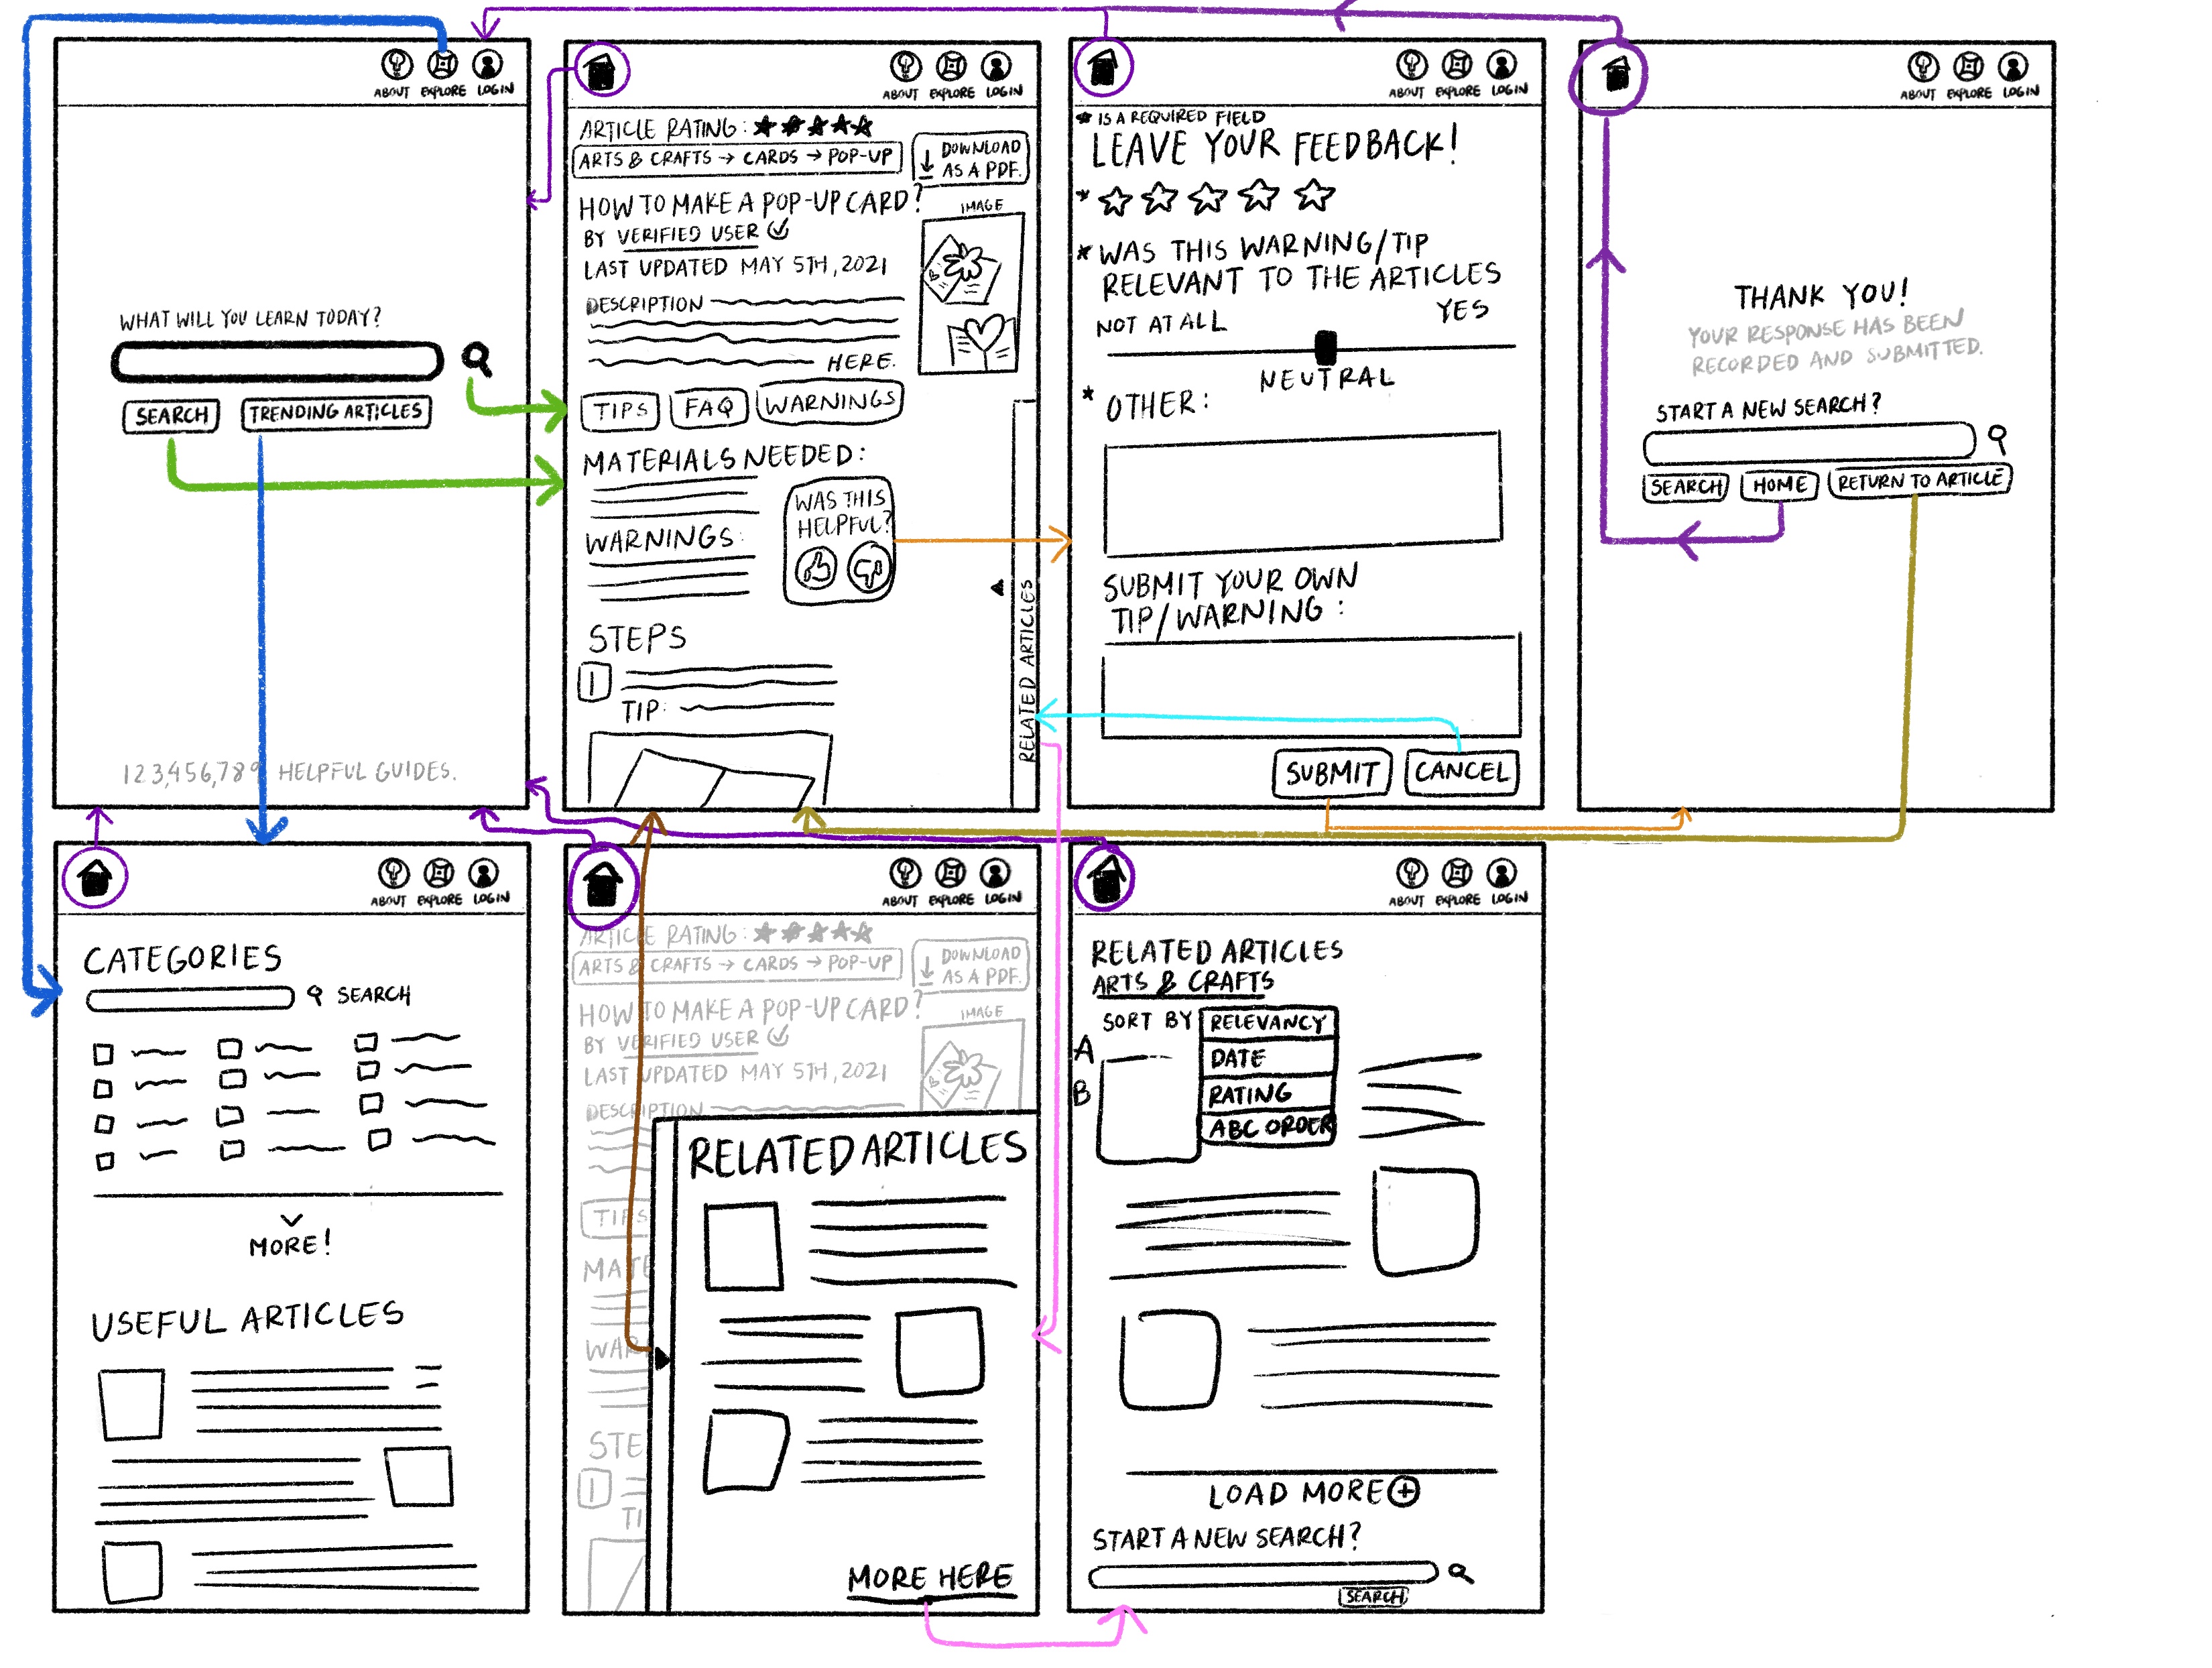 ABOUT EXPLORE LOGIN
WHAT WILL YOU LEARN TODAY?
SEARCH
TRENDING ARTICLES
123,456,789 HELPFUL GUIDES.
ABOUT EXPLORE LOGIN
ARTICLE RATING:
ARTS & CRAFTS → CARDS → POP-UP
DOWNLOAD
AS A PDF.
HOW TO MAKE A POP-UP CARD?
BY VERIFIED USER
LAST UPDATED MAY 5TH, 2021
IMAGE
DESCRIPTION
HERE.
TIPS
FAQ
WARNINGS
MATERIALS NEEDED:
WAS THIS
HELPFUL?
WARNINGS:
STEPS
1
TIP:
RELATED ARTICLES
ABOUT EXPLORE LOGIN
* IS A REQUIRED FIELD
LEAVE YOUR FEEDBACK!
*
* WAS THIS WARNING/TIP
RELEVANT TO THE ARTICLES
NOT AT ALL
YES
NEUTRAL
* OTHER:
SUBMIT YOUR OWN
TIP/WARNING:
SUBMIT
CANCEL
ABOUT EXPLORE LOGIN
THANK YOU!
YOUR RESPONSE HAS BEEN
RECORDED AND SUBMITTED.
START A NEW SEARCH?
SEARCH
HOME
RETURN TO ARTICLE
ABOUT EXPLORE LOGIN
CATEGORIES
SEARCH
MORE!
USEFUL ARTICLES
ABOUT EXPLORE LOGIN
ARTICLE RATING:
ARTS & CRAFTS → CARDS → POP-UP
DOWNLOAD
AS A PDF.
HOW TO MAKE A POP-UP CARD?
BY VERIFIED USER
LAST UPDATED MAY 5TH, 2021
IMAGE
DESCRIPTION
TIPS
MATE
WAR
STE
1
TI
RELATED ARTICLES
MORE HERE
ABOUT EXPLORE LOGIN
RELATED ARTICLES
ARTS & CRAFTS
SORT BY
RELEVANCY
DATE
RATING
ABC ORDER
A
B
LOAD MORE
START A NEW SEARCH?
SEARCH